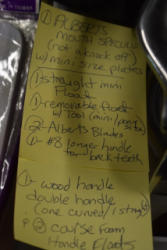 ① ALBERTS
MOUTH SPECULUM
(not a knock off)
w/ mini size plates
1 straight mini
Float
1 - removable float
w/ Tool (mini/pony size
2 - Alberts Blades
① - #8 longer handle
for back teeth
① - wood handle
double handle
(one curved / 1 straight)
② course foam
Handle Floats